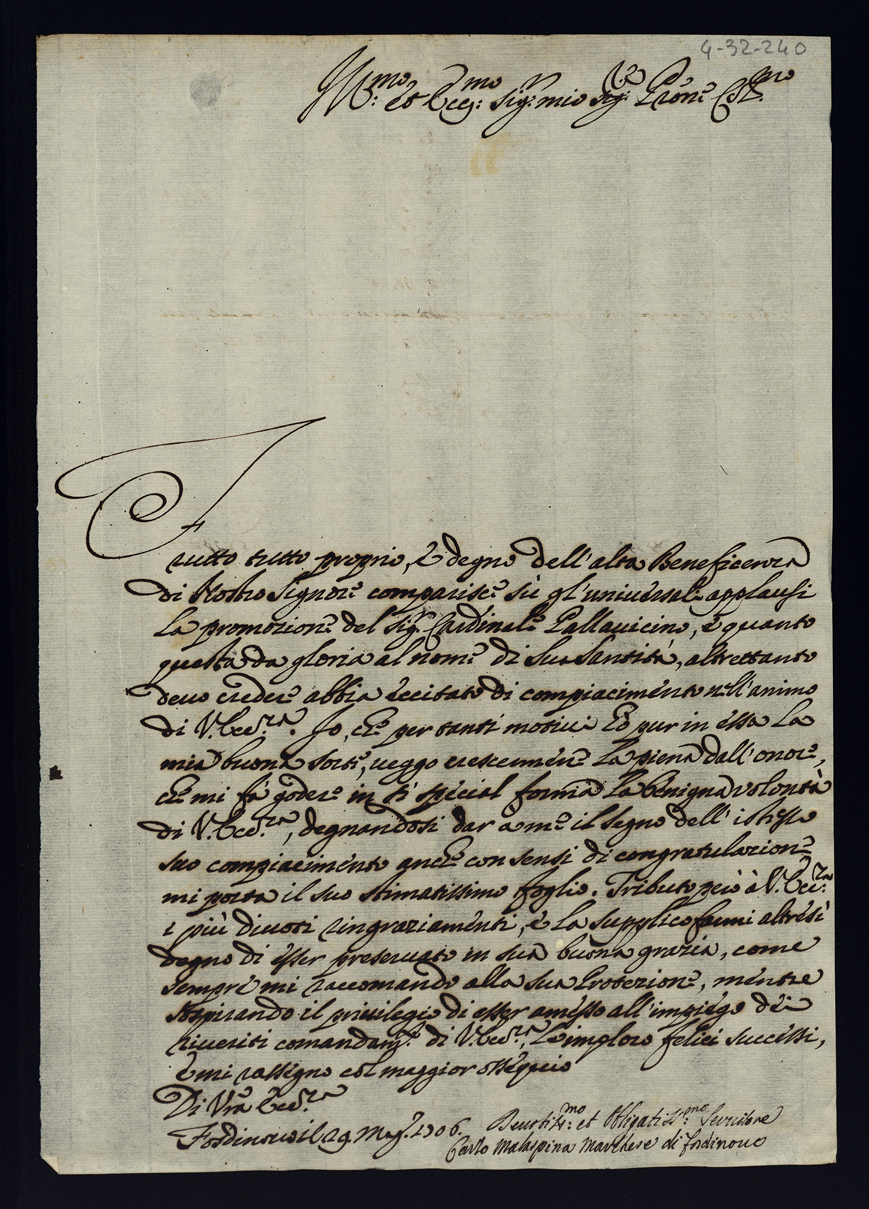 4-32-240
Ill.mo et Ecc.mo Sig.r mio Sig.r P.ron Col.mo
Frutto tutto proprio, è degno dell'alta Beneficenza
di Nostro Signore comparisce sù gl'universali applausi
la promozione del Sig.r Cardinale Pallavicino, e quanto
questa da gloria al nome di Sua Santità, altrettanto
devo credere abbia eccitato di compiacimento nell'animo
di V. Ecc.za. Io, che per tanti motivi ed pur in essa la
mia buona sorte, veggo crescermene la piena dall'onore,
che mi fà godere in sì special forma la benigna volontà
di V. Ecc.za, degnandosi dar à me il segno dell'istesso
suo compiacimento anche con sensi di congratulazione
mi porta il suo stimatissimo foglio. Tributo però à V. Ecc.za
i più divoti ringraziamenti, e la supplico farmi altresì
degno di esser preservato in sua buona grazia, come
sempre mi raccomando alla sua Protezione, mentre
sospirando il privilegio di esser amesso all'impiego dei
riveriti comandam.ti di V. Ecc.za, le imploro felici successi,
e mi rassegno col maggior ossequio
Di V.ra Ecc.za
Fosdinovo il 29 Mag.o 1706.
Devotiss.mo et Obligatiss.mo Servitore
Carlo Malaspina Marchese di Fosdinovo